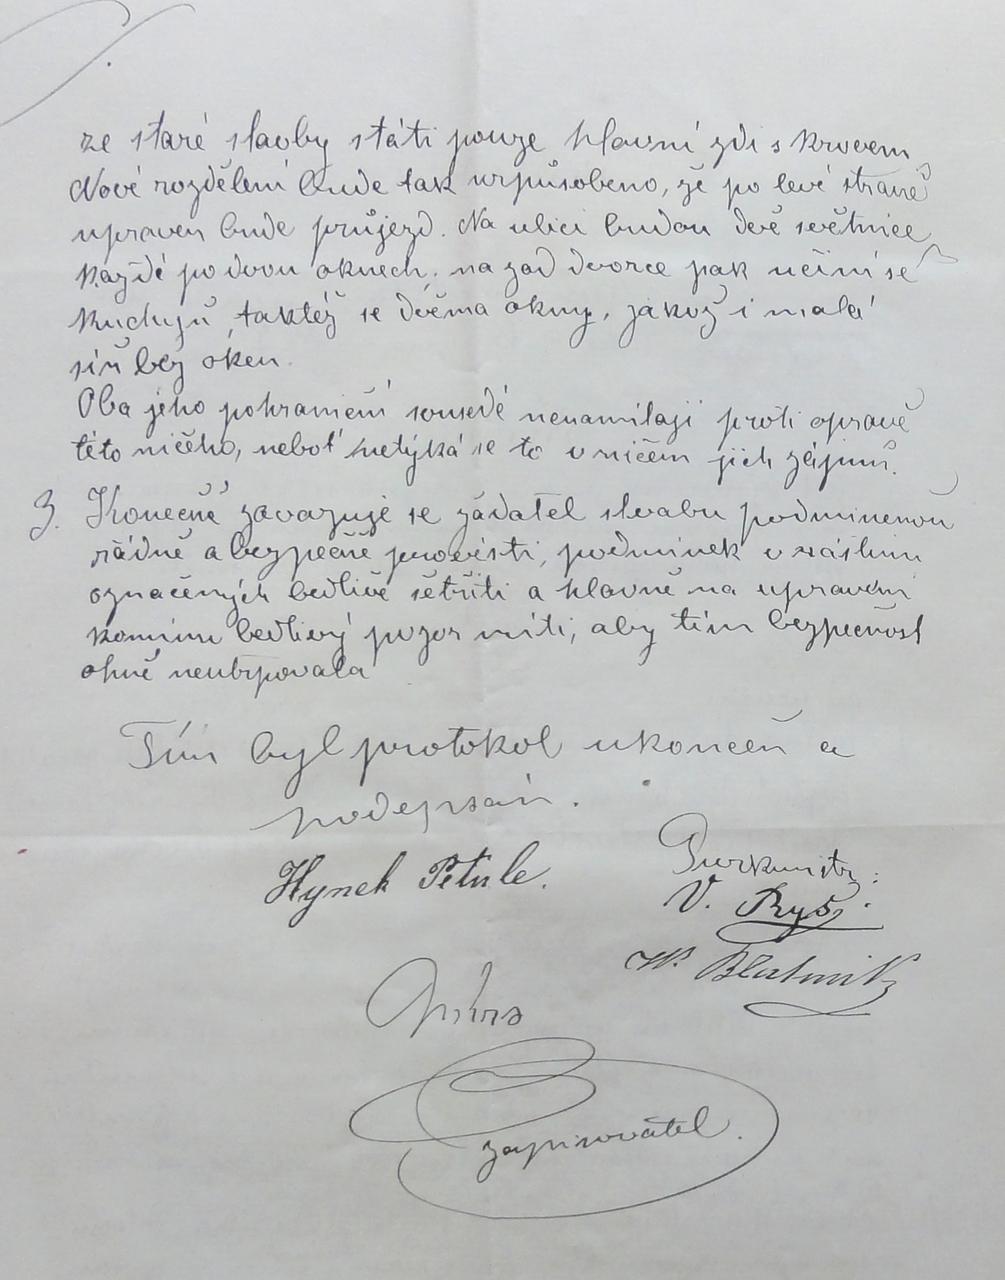 ze staré stavby státi pouze hlavní zdi s krovem
Nové rozdělení bude tak uzpůsobeno, že po levé straně
upraven bude průjezd. Na ulici budou dvě světnice
každé po dvou oknech, na zad dvorce pak učiní se
kuchyň, taktéž se dvěma okny, jakož i malá
síň bez oken.
Oba jeho pohraniční sousedé nenamítají proti opravě
této ničeho, neboť netýká se to v ničem jich zájmů.
3. Konečně zavazuje se žadatel stavbu podmíněnou
řádně a bezpečně provésti, podmínek v
označených bedlivě šetřiti a hlavně na upravení
komínu bedlivý pozor míti, aby tím bezpečnost
ohně neutrpovala
Tím byl protokol ukončen a
podepsán.
Hynek Petule.
Purkmistr:
V. Ryš
W. Blatnik
zapisovatel.